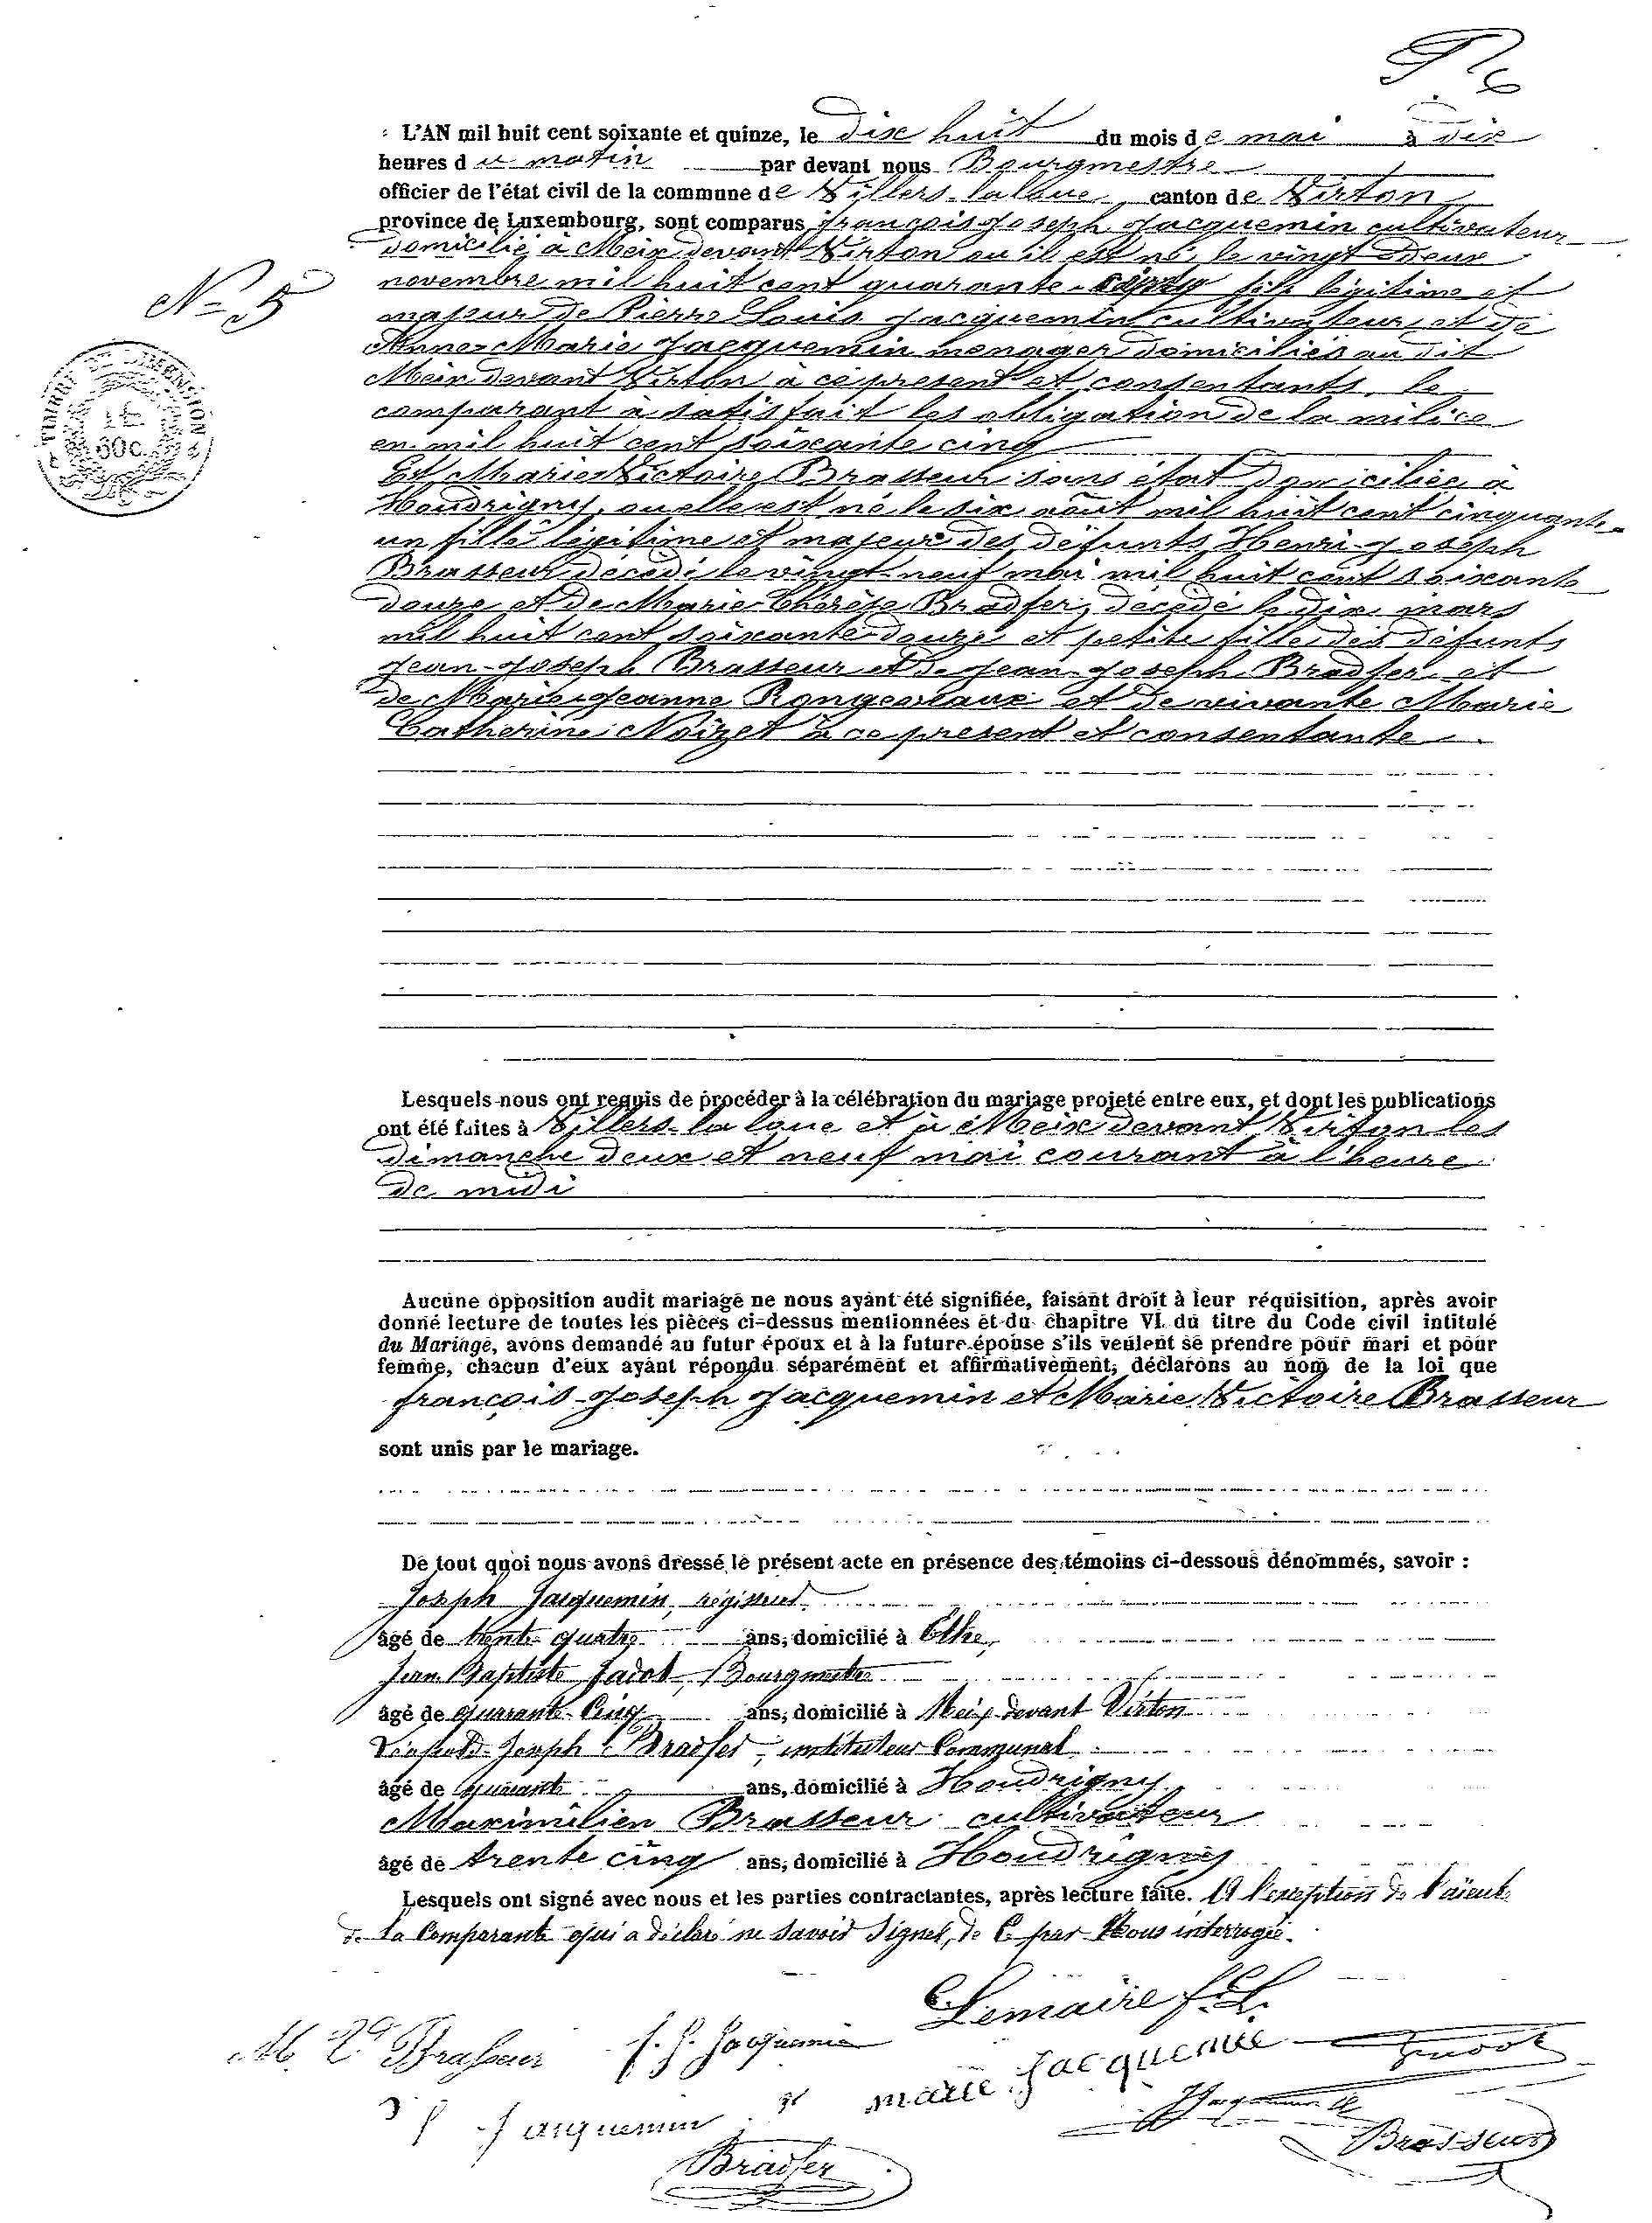 P 6
L'AN mil huit cent soixante et quinze, le dix huit du mois de mai à dix
heures du matin par devant nous Bourgmestre
officier de l'état civil de la commune de Villers-la loue, canton de Virton
province de Luxembourg, sont comparus françois Joseph Jacquemin cultivateur
domicilié à Meix devant Virton ou il est né, le vingt deux
N° 5
novembre mil huit cent quarante-cinq fils légitime et
majeur de Pierre Louis Jacquemin cultivateur, et de
Anne-Marie Jacquemin menager domiciliés au dit
TIMBRE DE DIMENSION
60c.
Meix devant Virton à ce présent et consentants. le
comparant à satisfait les obligation de la milice
en mil huit cent soixante cinq
Et Marie Victoire Brasseur sans état domiciliée à
Houdrigny, ou elle est né le six août mil huit cent cinquante-
un fille légitime et majeure des défunts Henri-Joseph
Brasseur décédé le vingt-neuf mai mil huit cent soixante
douze et de Marie Thérèse Bradfer, décédé le dix mars
mil huit cent soixante douze et petite fille des défunts
Jean-Joseph Brasseur et de Jean-Joseph Bradfer, et
de Marie-Jeanne Rongevaux et de vivante Marie
Catherine Noizet à ce présent et consentante
Lesquels nous ont requis de procéder à la célébration du mariage projeté entre eux, et dont les publications
ont été faites à Villers-la loue et à Meix devant Virton les
dimanche deux et neuf mai courant à l'heure
de midi
Aucune opposition audit mariage ne nous ayant été signifiée, faisant droit à leur réquisition, après avoir
donné lecture de toutes les pièces ci-dessus mentionnées et du chapitre VI du titre du Code civil intitulé
du Mariage, avons demandé au futur époux et à la future épouse s'ils veulent se prendre pour mari et pour
femme, chacun d'eux ayant répondu séparément et affirmativement, déclarons au nom de la loi que
françois-Joseph Jacquemin et Marie Victoire Brasseur
sont unis par le mariage.
De tout quoi nous avons dressé le présent acte en présence des témoins ci-dessous dénommés, savoir :
Joseph Jacquemin, régisseur
âgé de trente-quatre ans, domicilié à Ethe,
Jean Baptiste Jacot, Bourgmestre
âgé de quarante-Cinq ans, domicilié à Meix-devant Virton
Léopold-Joseph Bradfer, instituteur Communal
âgé de quarante ans, domicilié à Houdrigny
Maximilien Brasseur cultivateur
âgé de trente cinq ans, domicilié à Houdrigny
Lesquels ont signé avec nous et les parties contractantes, après lecture faite. A l'exception de l'aïeule
de la Comparante qui a déclaré ne savoir signer, de Ce par Nous interrogée.
Lemaire f. L.
M. V. Brasseur f. J. Jacquemin
marie Jacquemin
Jacquemin
Bradfer
Brasseur